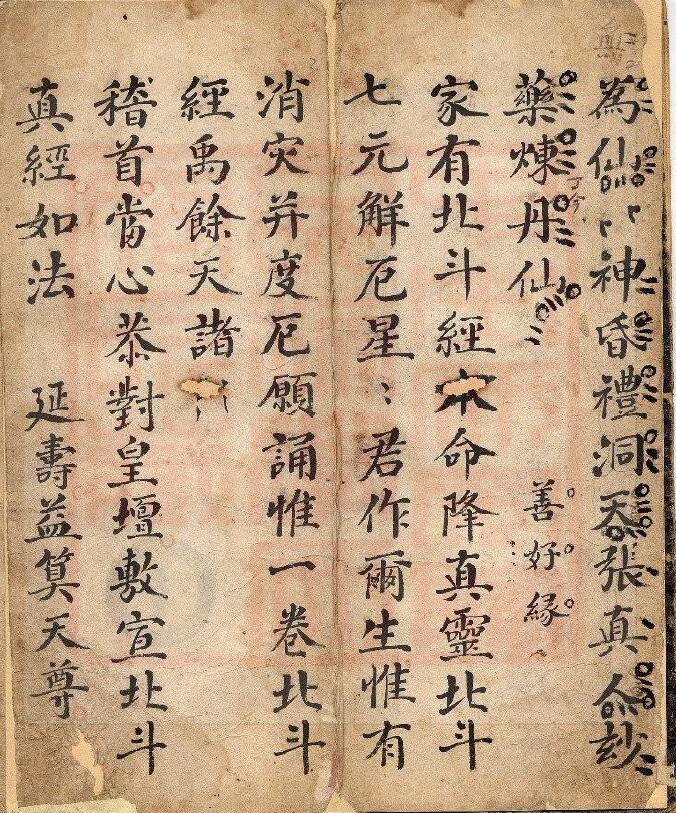 為仙神昏禮洞天張真人妙
藥煉丹仙
善好緣
家有北斗經本命降真靈北斗
七元解厄星君作爾生惟有
消灾并度厄願誦惟一卷北斗
經禹餘天諸
稽首當心恭對皇壇敷宣北斗
真經如法 延壽益算天尊